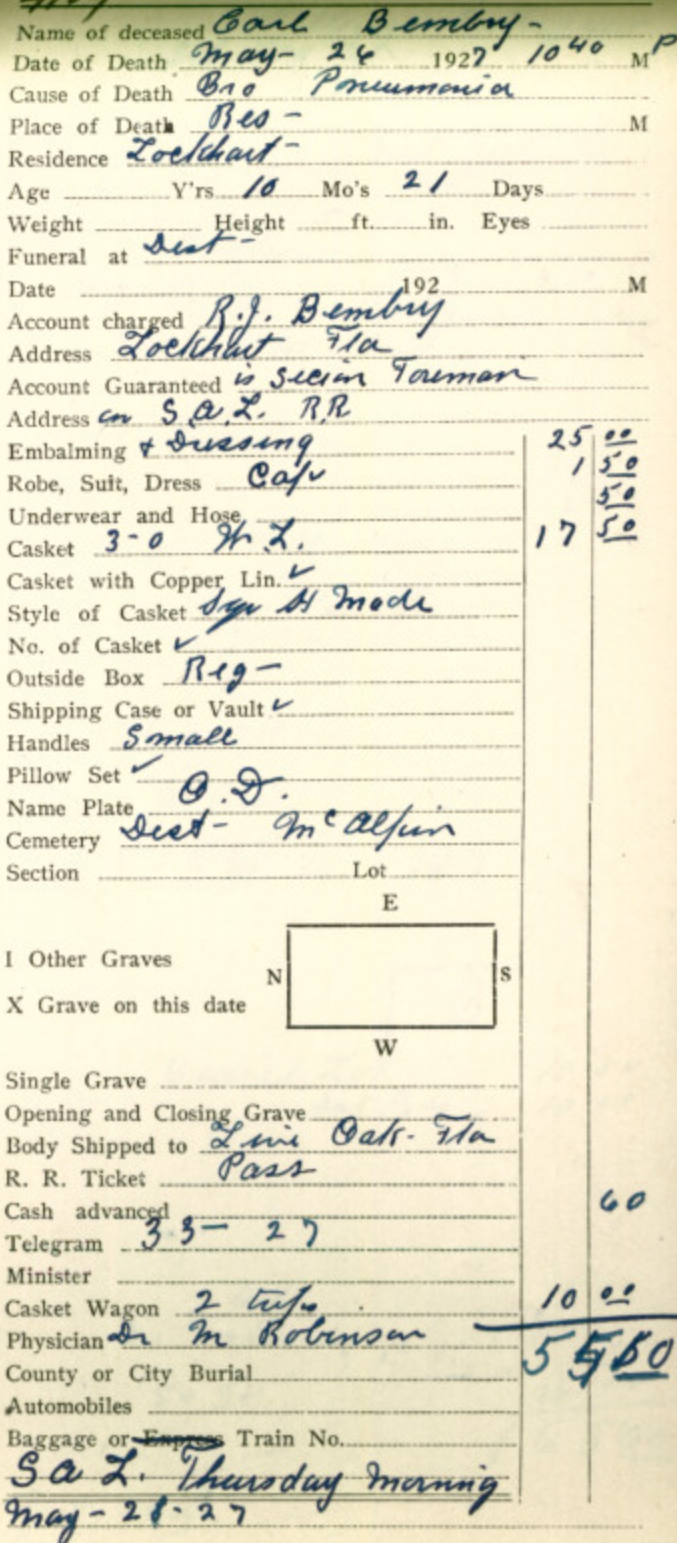 Name of deceased Carl Bembry-
Date of Death May- 26 1927 10 40 M P
Cause of Death Bro Pneumonia
Place of Death Res- M
Residence Lockhart-
Age Y'rs 10 Mo's 21 Days
Weight Height ft. in. Eyes
Funeral at Dest-
Date 192 M
Account charged R.J. Bembry
Address Lockhart Fla
Account Guaranteed is Secion Foreman
Address on S.A.L. R.R
Embalming & Dressing 25 00
Robe, Suit, Dress Cap 1 50
Underwear and Hose 50
Casket 3-0 W.L. 17 50
Casket with Copper Lin. ✓
Style of Casket Sqr Mode
No. of Casket ✓
Outside Box Reg-
Shipping Case or Vault ✓
Handles Small
Pillow Set ✓
Name Plate O.D.
Cemetery Dest- McAlpin
Section Lot
E
I Other Graves
N S
X Grave on this date
W
Single Grave
Opening and Closing Grave
Body Shipped to Live Oak- Fla
R. R. Ticket Pass
Cash advanced 60
Telegram 33- 27
Minister
Casket Wagon 2 trips 10 00
Physician Dr M Robinson
County or City Burial
Automobiles
Baggage or Express Train No.
S A L. Thursday Morning
May- 28-27